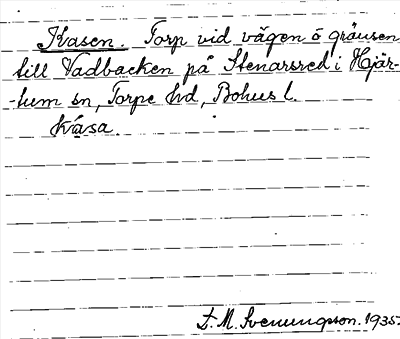 Kasen. Torp vid vägen å gränsen
till Vadbacken på Stenarsred i Hjär-
-tum sn, Torpe hd, Bohus l.
Kåsa.
L. M. Svenungson. 1935.